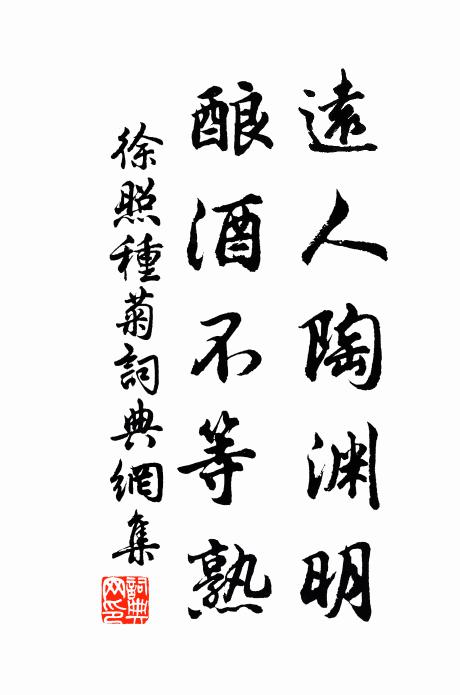 遠人陶渊明
酿酒不等熟
徐照種菊詞典網集
詞典网印